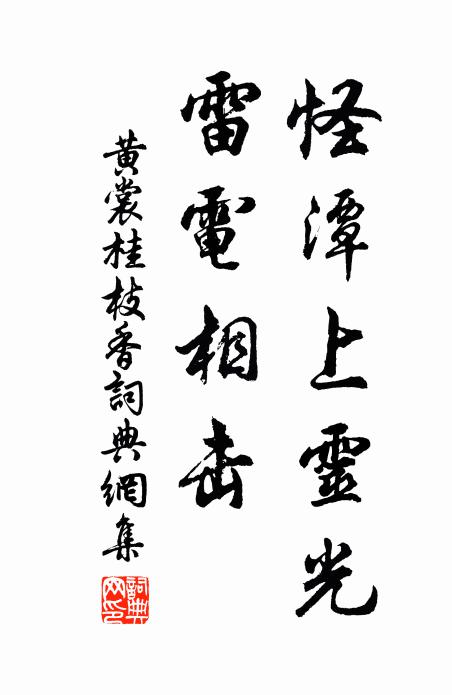 怪潭上靈光
雷電相击
黃裳桂枝香詞典網集
詞典網印